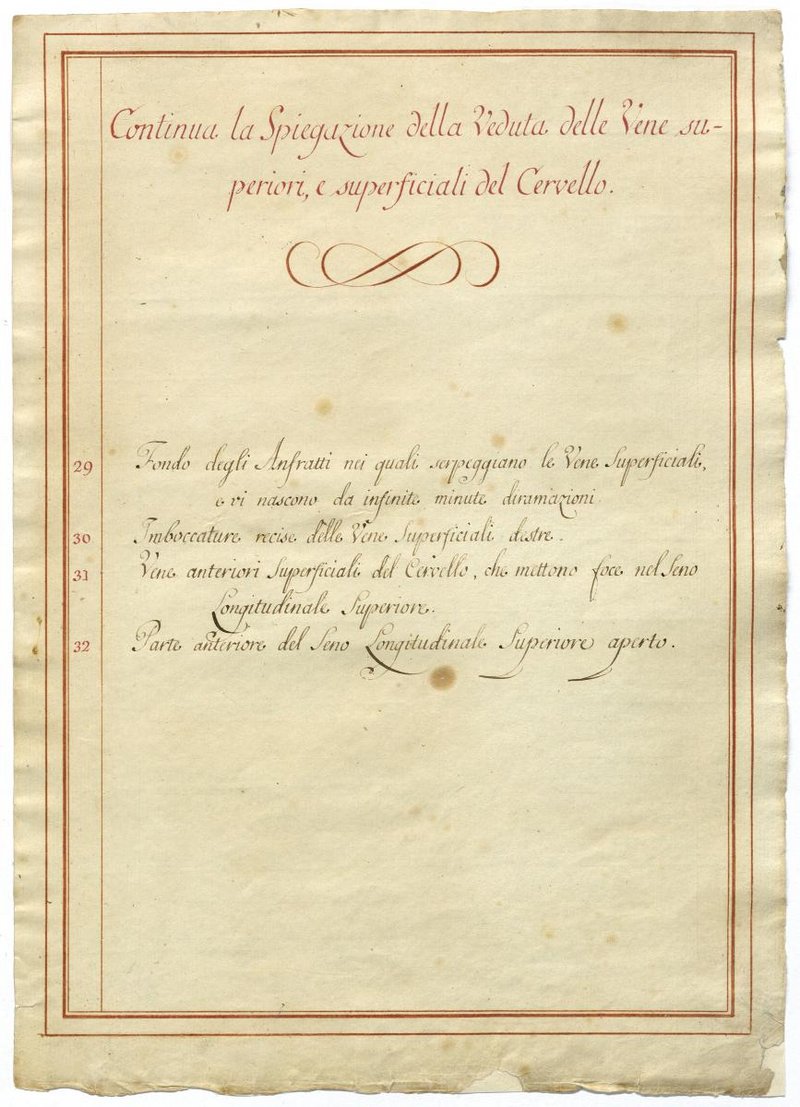 Continua la Spiegazione della Veduta delle Vene su-
periori, e superficiali del Cervello.
29 Fondo degli Anfratti nei quali serpeggiano le Vene Superficiali,
e vi nascono da infinite minute diramazioni.
30 Imboccature recise delle Vene Superficiali destre.
31 Vene anteriori Superficiali del Cervello, che mettono foce nel Seno
Longitudinale Superiore.
32 Parte anteriore del Seno Longitudinale Superiore aperto.